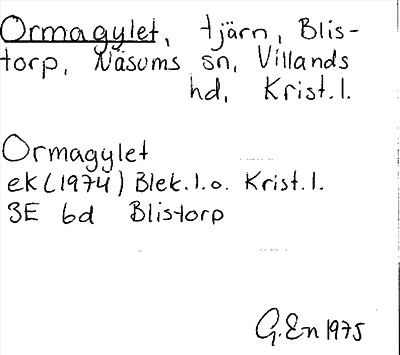 Ormagylet, tjärn, Blis-
torp, Näsums sn, Villands
hd, Krist. l.
Ormagylet
ek (1974) Blek. l. o. Krist. l.
3E 6d Blistorp
G. En 1975